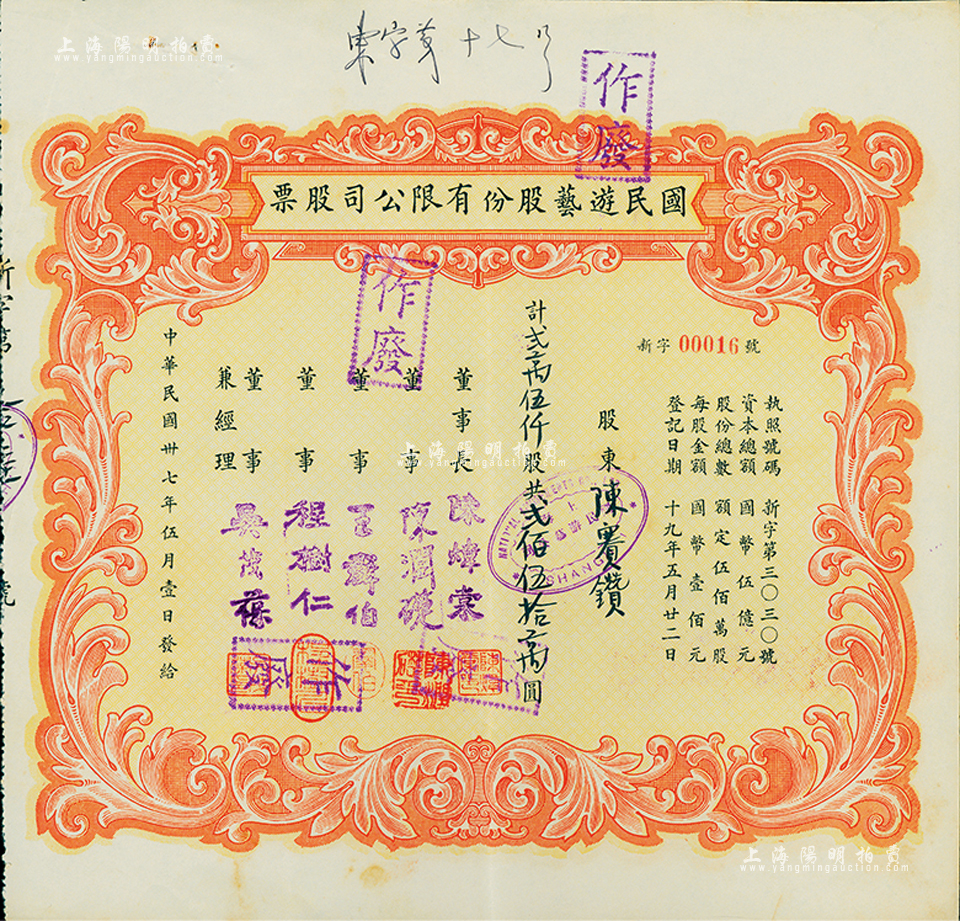 上海陽明拍賣
www.yangmingauction.com
東字第十七号
作廢
國民遊藝股份有限公司股票
新字 00016 號
執照號碼 新字第三〇三〇號
資本總額 國幣伍億元
股份總數 額定伍佰萬股
每股金額 國幣壹佰元
登記日期 十九年五月廿二日
股東 陳賽鑽
計弍萬伍仟股共弍佰伍拾萬圓
SHANGHAI
作廢
董事長 陳煒棠
董事 陳潤礎
董事 王爵伯
董事 程樹仁
董事兼經理 吳茂葆
作廢
中華民國卅七年伍月壹日發給
新字第
號
上海陽明拍賣
www.yangmingauction.com
上海陽明拍賣
www.yangmingauction.com